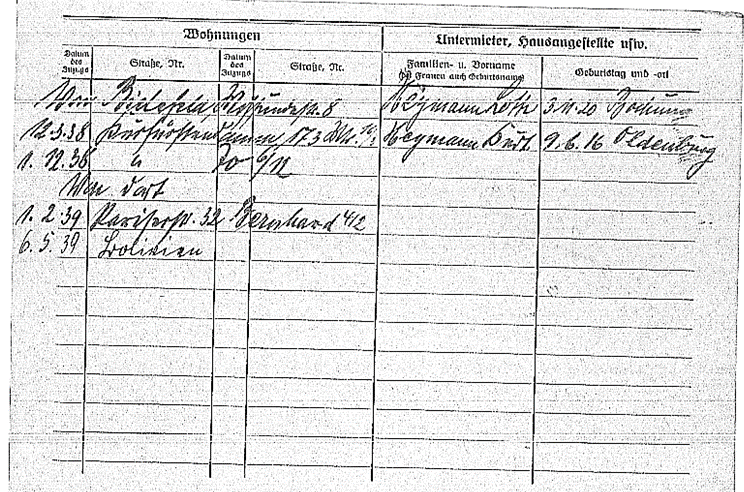 Wohnungen
Untermieter, Hausangestellte usw.
Datum des Zuzugs
Straße, Nr.
Datum des Zuzugs
Straße, Nr.
Familien- u. Vorname (bei Frauen auch Geburtsname)
Geburtstag und -ort
Von Bielefeld, 8 Heymann 3. 20 Bochum
12.3.38 Kurfürsten 173 Heymann Kurt 9.6.16 Oldenburg
1.12.38 "
Von dort
1.2.39 Pariserstr. 32 Bernhard
6.5.39 Bolivien